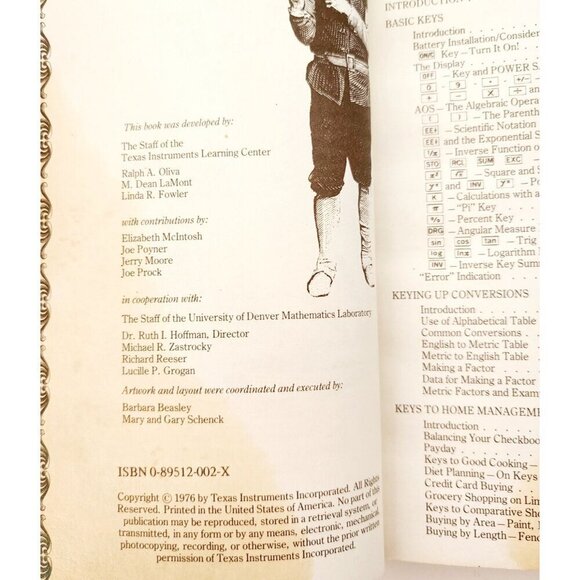 This book was developed by:
The Staff of the
Texas Instruments Learning Center
Ralph A. Oliva
M. Dean LaMont
Linda R. Fowler
with contributions by:
Elizabeth McIntosh
Joe Poyner
Jerry Moore
Joe Prock
in cooperation with:
The Staff of the University of Denver Mathematics Laboratory
Dr. Ruth I. Hoffman, Director
Michael R. Zastrocky
Richard Reeser
Lucille P. Grogan
Artwork and layout were coordinated and executed by:
Barbara Beasley
Mary and Gary Schenck
ISBN 0-89512-002-X
Copyright © 1976 by Texas Instruments Incorporated. All Rights
Reserved. Printed in the United States of America. No part of this
publication may be reproduced, stored in a retrieval system, or
transmitted, in any form or by any means, electronic, mechanical,
photocopying, recording, or otherwise, without the prior written
permission of Texas Instruments Incorporated.
INTRODUCTION
BASIC KEYS
Introduction
Battery Installation/Consider
ON/C Key—Turn It On!
The Display
OFF —Key and POWER
0 - 9 · +/-
+ - × ÷
AOS—The Algebraic Opera
( ) —The Parenth
EE↑ —Scientific Notation
EE↑ and the Exponential S
1/x —Inverse Function o
STO RCL SUM EXC
x² √x —Square and S
yˣ and INV yˣ —P
K —Calculations with a
π —"Pi" Key
% —Percent Key
DRG —Angular Measure
sin cos tan —Trig
log lnx —Logarithm
INV —Inverse Key Sum
"Error" Indication
KEYING UP CONVERSIONS
Introduction
Use of Alphabetical Table
Common Conversions
English to Metric Table
Metric to English Table
Making a Factor
Data for Making a Factor
Metric Factors and Exam
KEYS TO HOME MANAGEME
Introduction
Balancing Your Checkboo
Payday
Keys to Good Cooking—
Diet Planning—On Keys
Credit Card Buying
Grocery Shopping on Lim
Keys to Comparative Sho
Buying by Area—Paint,
Buying by Length—Fenc